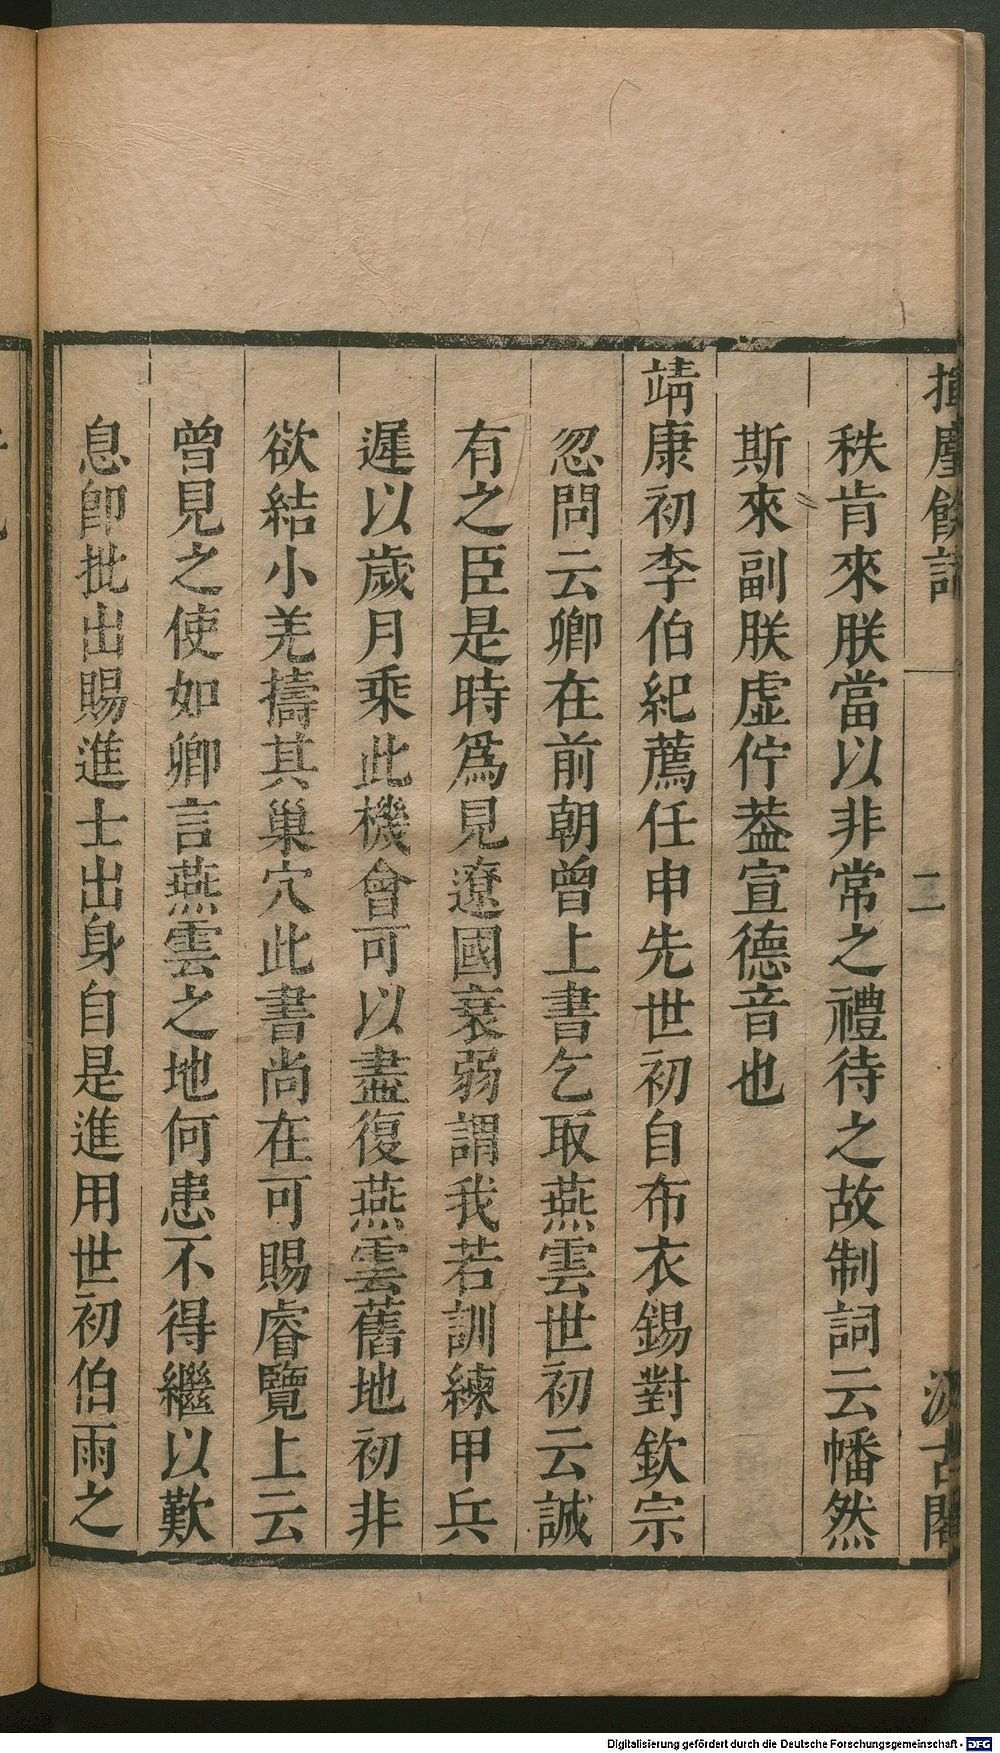 揮麈餘話 二 汲古閣
秩肯來朕當以非常之禮待之故制詞云幡然
斯來副朕虛佇葢宣德音也
靖康初李伯紀薦任申先世初自布衣錫對欽宗
忽問云卿在前朝曾上書乞取燕雲世初云誠
有之臣是時爲見遼國衰弱謂我若訓練甲兵
遲以歲月乘此機會可以盡復燕雲舊地初非
欲結小羌擣其巢穴此書尚在可賜睿覽上云
曾見之使如卿言燕雲之地何患不得繼以歎
息卽批出賜進士出身自是進用世初伯雨之
Digitalisierung gefördert durch die Deutsche Forschungsgemeinschaft - DFG